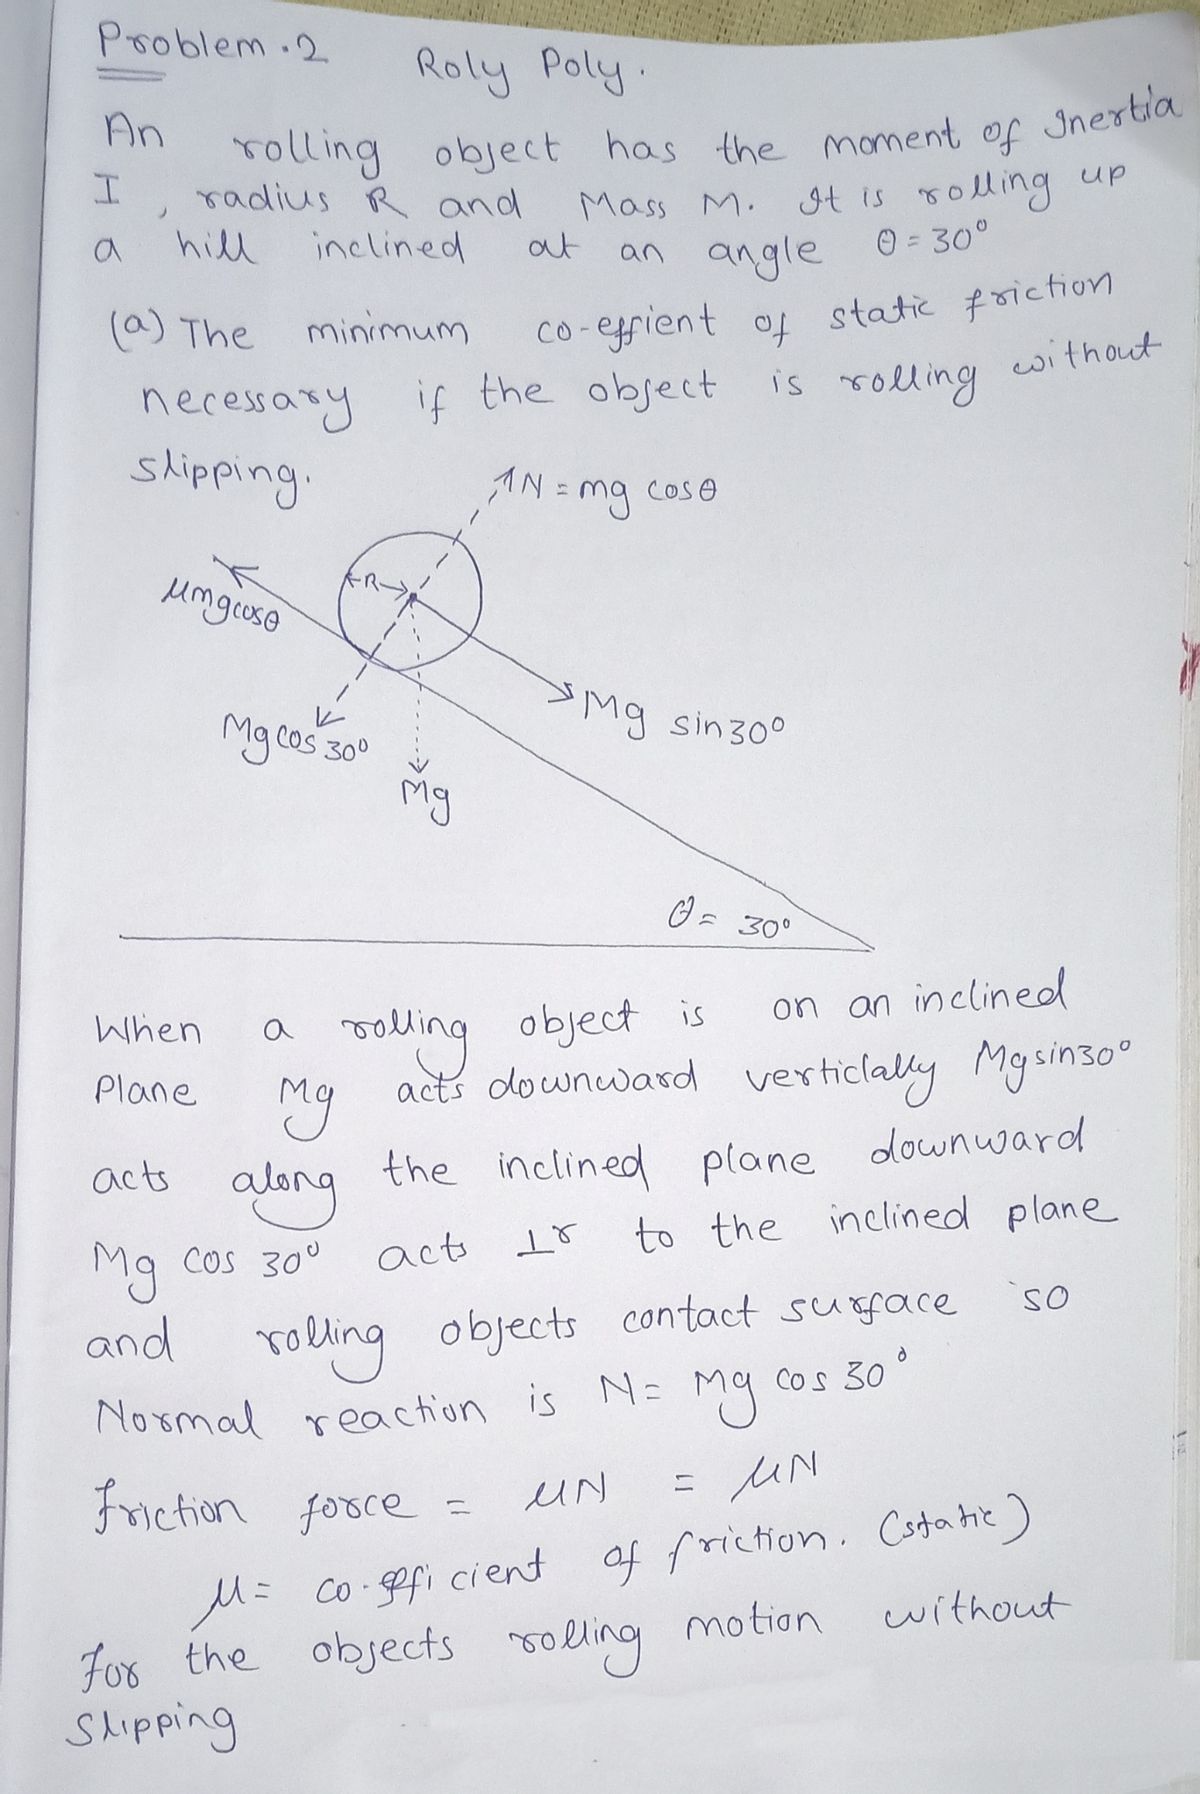 Problem.2 Roly Poly.
An rolling object has the moment of Inertia
I, radius R and Mass M. It is rolling up
a hill inclined at an angle θ = 30°
(a) The minimum co-effient of static friction
necessary if the object is rolling without
slipping.
N = mg cosθ
R
μmgcosθ
Mg sin30°
Mg cos 30°
Mg
θ = 30°
When a rolling object is on an inclined
Plane Mg acts downward verticlally Mgsin30°
acts along the inclined plane downward
Mg cos 30° acts ⊥r to the inclined plane
and rolling objects contact surface so
Normal reaction is N = Mg cos 30°
friction force = μN = μN
μ = co-efficient of friction. (static)
For the objects rolling motion without
Slipping